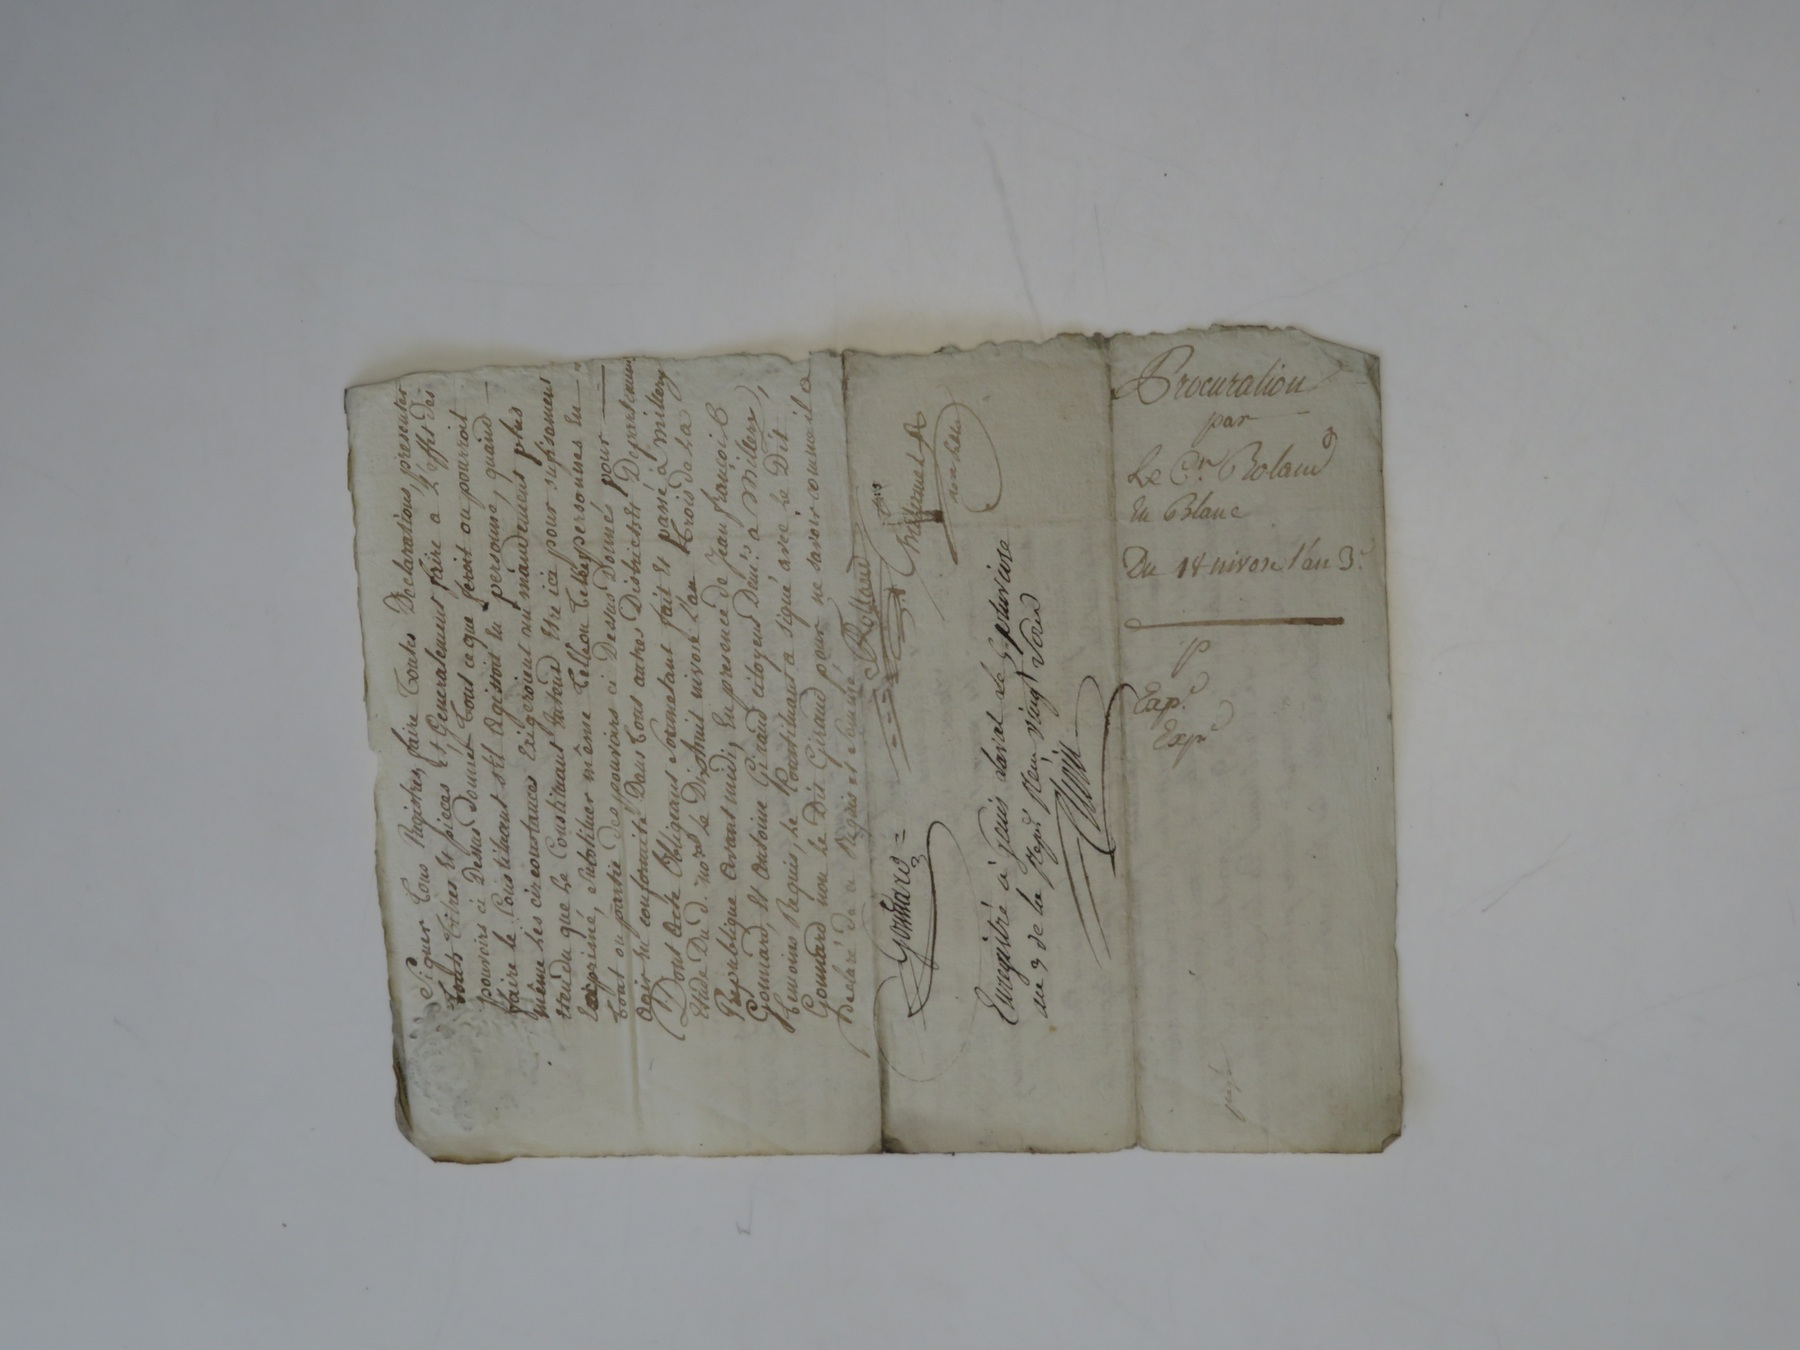 Signer Tous Registres, faire Toutes Déclarations, presenter
Tous Titres Et pieces Et Généralement faire a L'effet des
pouvoirs ci Dessus Donnés Tous ce que feroit ou pourroit
faire le Constituant s'il Agissoit En personne, quand
même Les circonstances Exigeroient un mandement plus
Etendu que Le Constituant Entend Etre ici pour suffisament
Exprimé, substituer même Telle ou Telles personnes En
Tout ou partie des pouvoirs ci Dessus Donnés pour
Agir En conformité Dans Tous autres Districts Et Departements
Dont Acte Obligeant Serment fait Et passé a Millery
Etude Du d. nore Le Dix huit nivose L'an Trois de La
Republique avant midi, En presence de Jean françois B
Gonnard, Et Antoine Giraud citoyens Demts a Millery,
Temoins Requis, Le Constituant a signé avec Le Dit
Gonnard non Le Dit Giraud pour ne savoir comme il a
Declaré de ce Requis et Sommé
Rolland
Gonnard
Enregistré à Genis Laval le 9 pluviose
an 3 de la Repub. Reçu vingt sous
Procuration
par
Le Cn. Roland
En Blanc
Du 18 nivose l'an 3e
P
Exp.
Expé